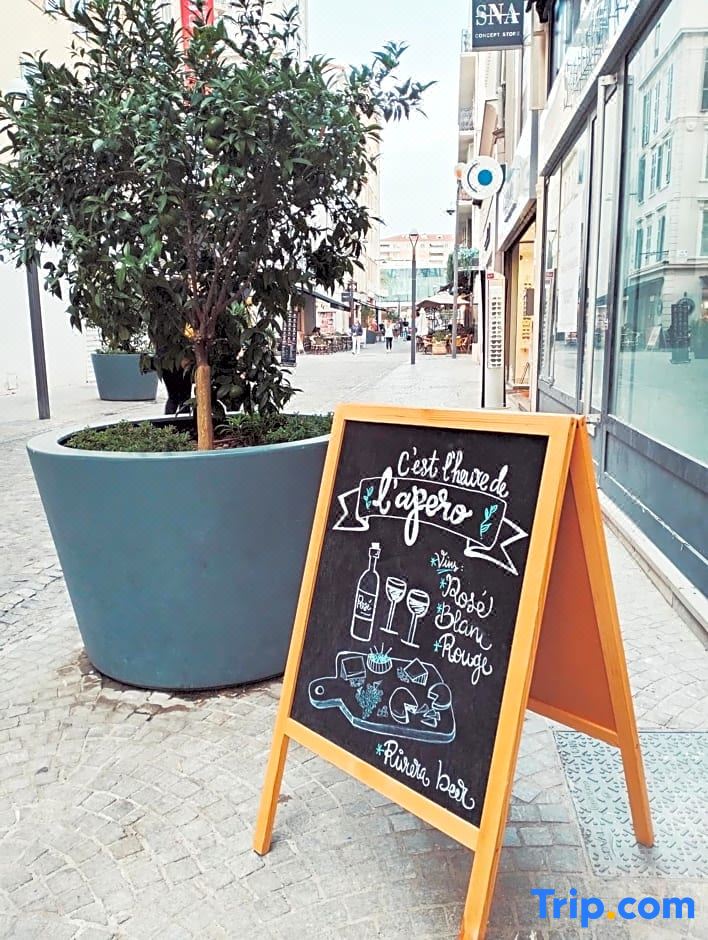 SNA
CONCEPT STORE
C'est l'heure de
l'apero
*Vins:
Rosé
*Rosé
*Blanc
*Rouge
*Riviera beer
Trip.com